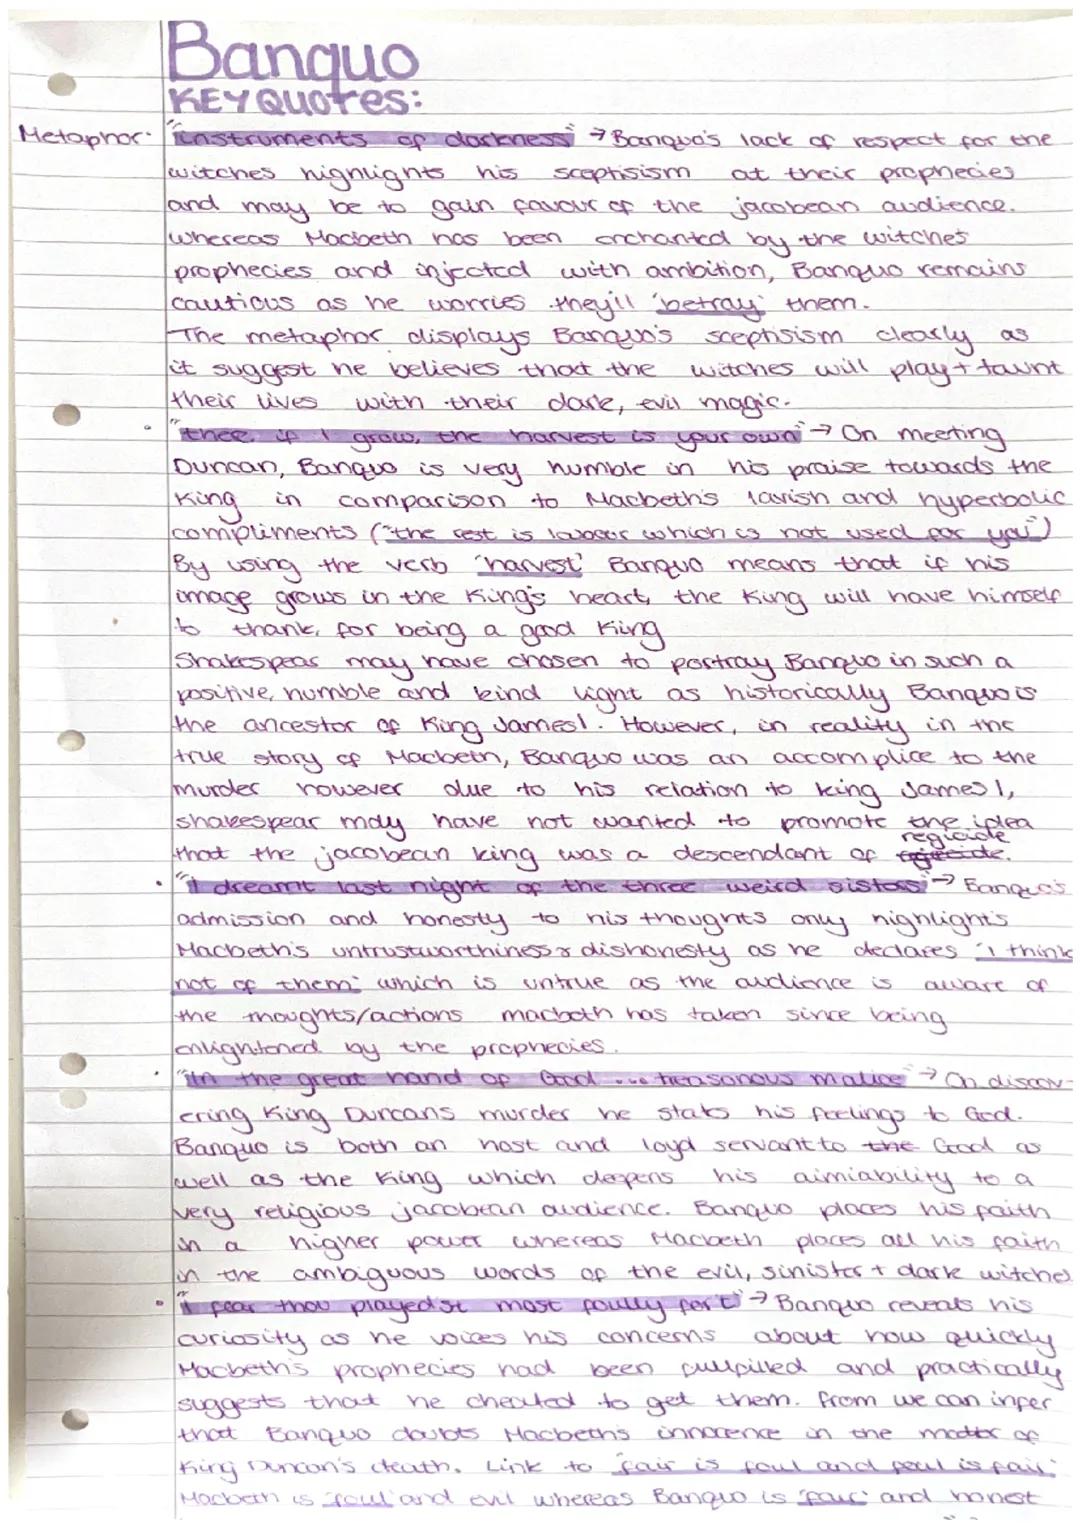 Banquo
KEY QUOTES:
Metaphor· "instruments of darkness" → Banquo's lack of respect for the
witches highlights his sceptisism at their prophecies
and may be to gain favour of the jacobean audience.
Whereas Macbeth has been enchanted by the witches
prophecies and injected with ambition, Banquo remains
cautious as he worries they'll 'betray' them.
The metaphor displays Banquo's sceptisism clearly as
it suggest he believes that the witches will play + taunt
their lives with their dark, evil magic.
· "there if I grow, the harvest is your own" → On meeting
Duncan, Banquo is very humble in his praise towards the
King in comparison to Macbeth's lavish and hyperbolic
compliments ("the rest is labour which is not used for you")
By using the verb 'harvest' Banquo means that if his
image grows in the King's heart, the King will have himself
to thank, for being a good King
Shakespear may have chosen to portray Banquo in such a
positive, humble and kind light as historically Banquo is
the ancestor of King James I. However, in reality in the
true story of Macbeth, Banquo was an accomplice to the
murder however due to his relation to king James I,
shakespear may have not wanted to promote the idea
regicide
that the jacobean king was a descendant of
· "I dreamt last night of the three weird sisters" → Banquo's
admission and honesty to his thoughts only highlights
Macbeth's untrustworthiness & dishonesty as he declares 'i think
not of them' which is untrue as the audience is aware of
the thoughts/actions macbeth has taken since being
enlightened by the prophecies.
· "In the great hand of God ... treasonous malice" → On discov-
ering King Duncans murder he stats his feelings to God.
Banquo is both an host and loyal servant to the God as
well as the King which deepens his aimiability to a
very religious jacobean audience. Banquo places his faith
in a higher power whereas Macbeth places all his faith
in the ambiguous words of the evil, sinister + dark witches
· "I fear thou played'st most foully for't" → Banquo reveals his
curiosity as he voices his concerns about how quickly
Macbeth's prophecies had been fullfilled and practically
suggests that he cheated to get them. From we can infer
that Banquo doubts Macbeths innocence in the matter of
King Duncan's death. Link to 'fair is foul and foul is fair'
Macbeth is 'foul' and evil whereas Banquo is 'fair' and honest